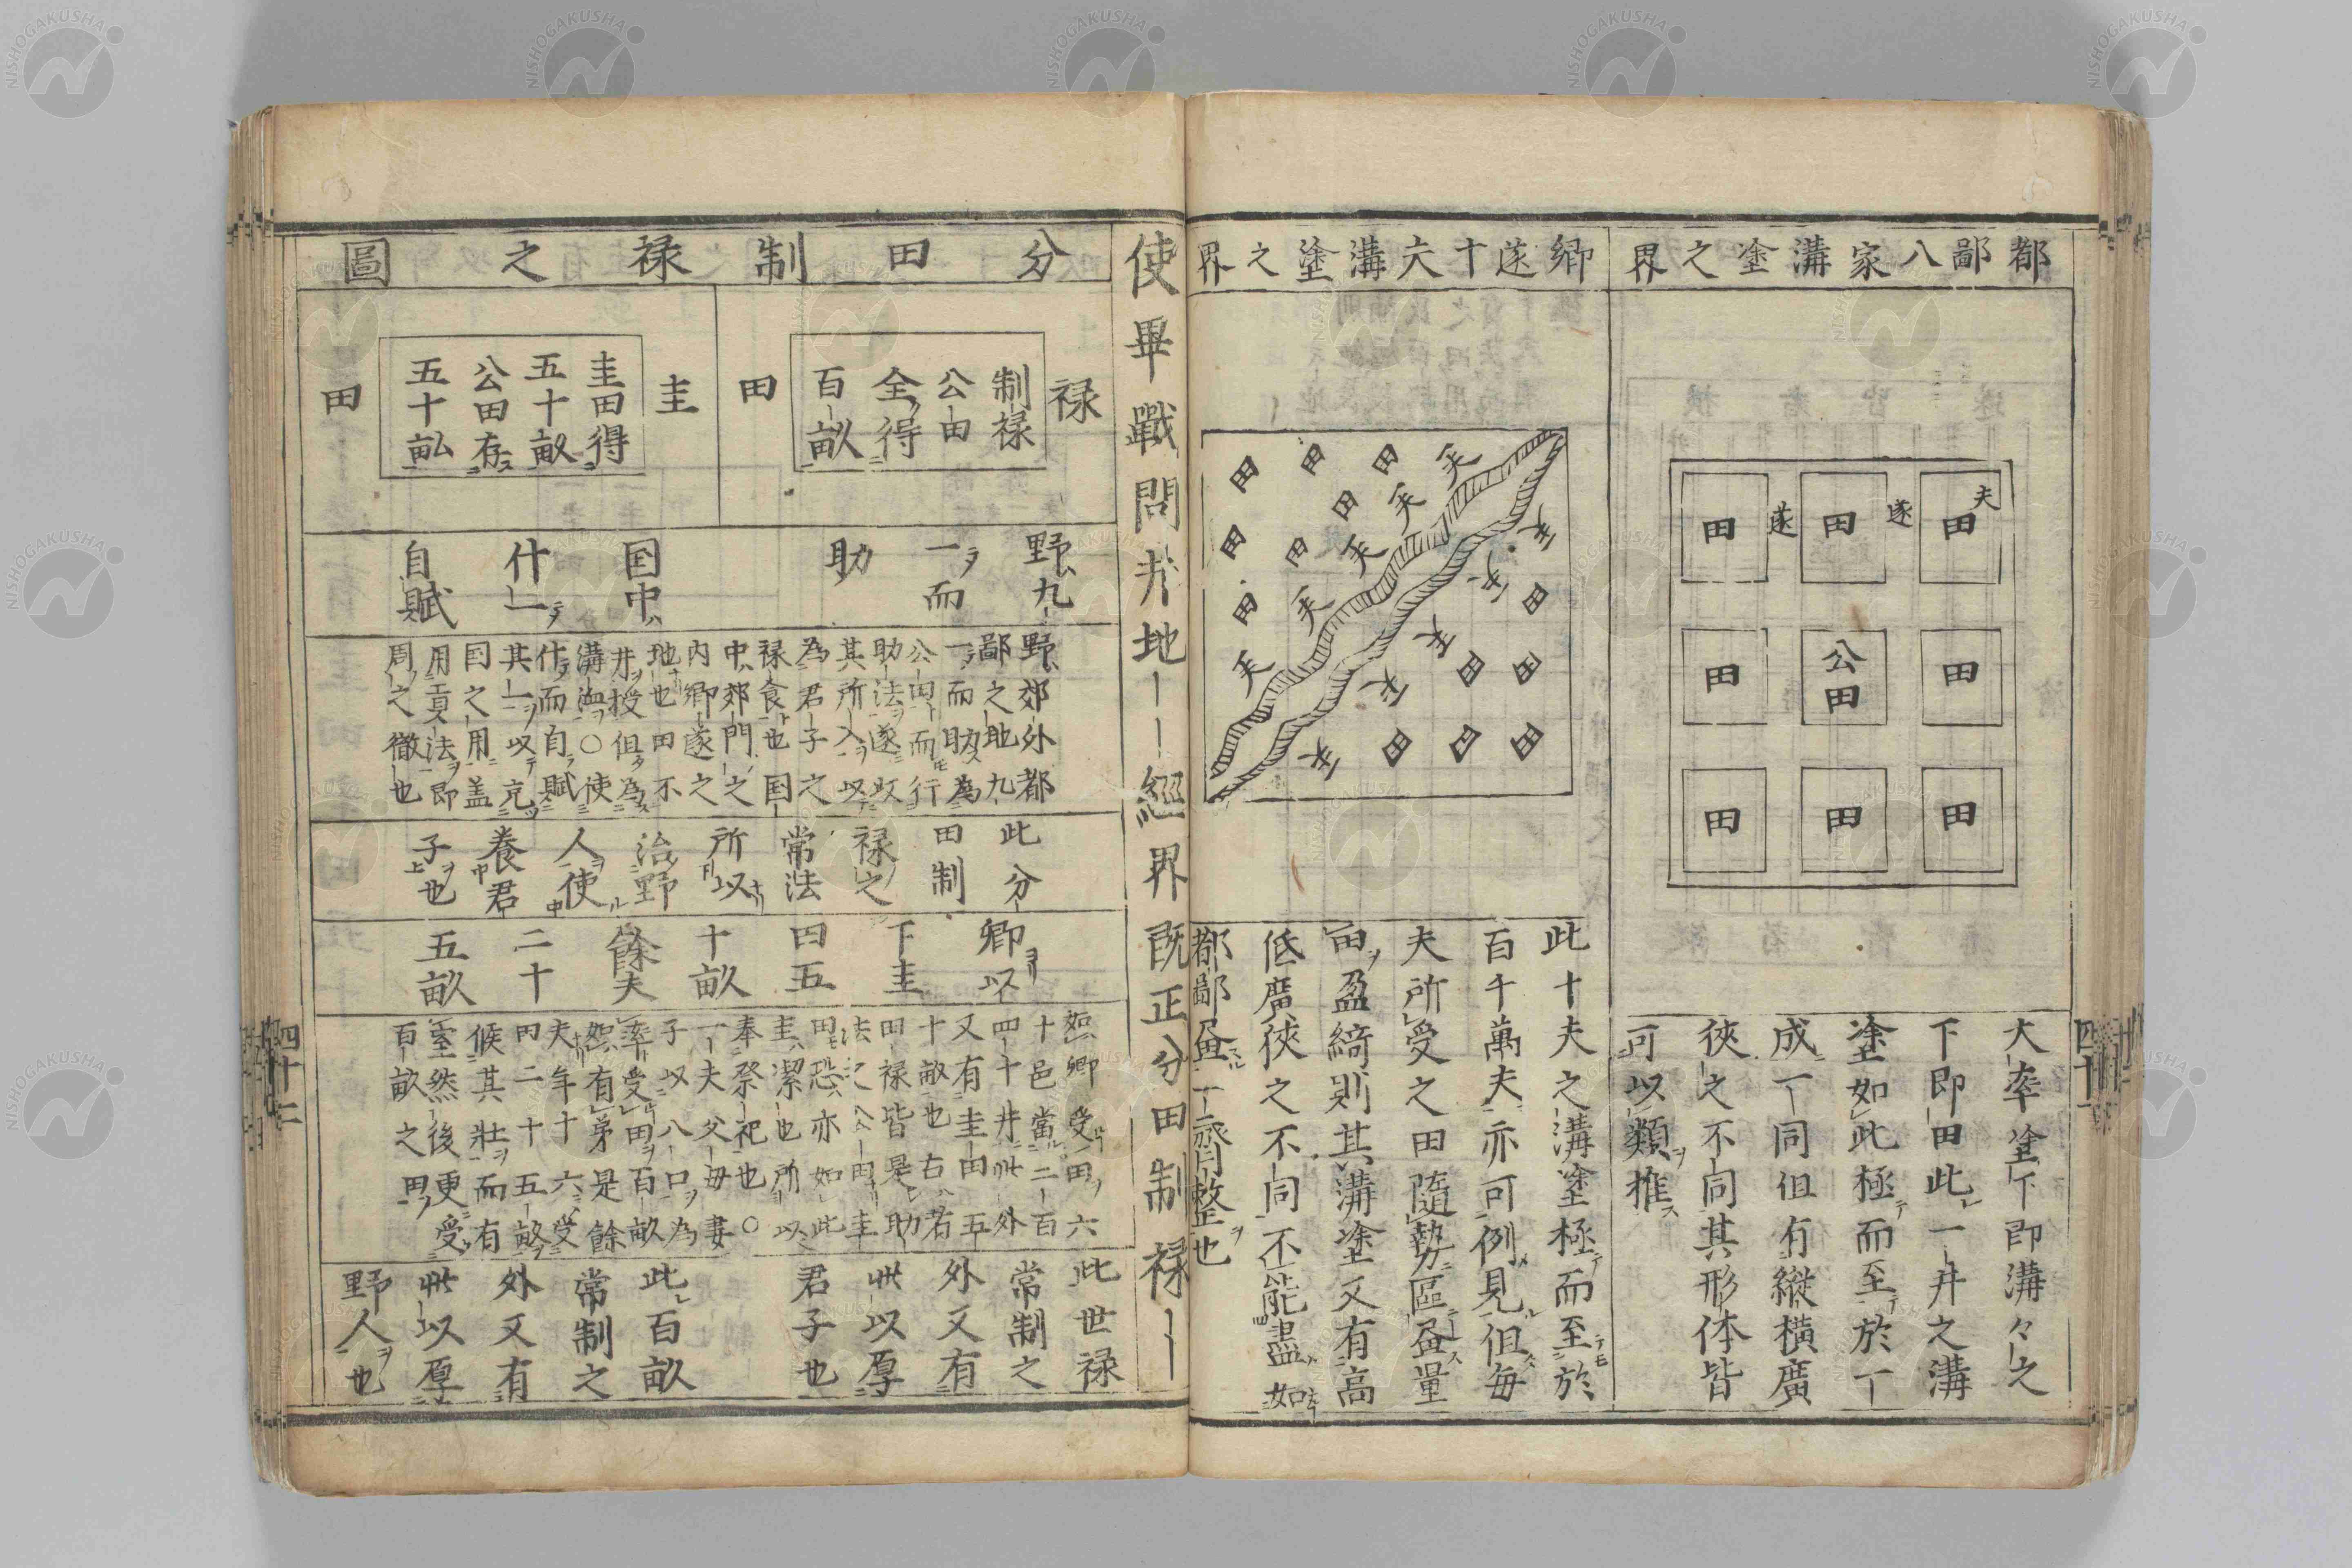 都鄙八家溝塗之界
夫
田
遂
田
遂
田
田
公田
田
田
田
田
大率塗下即溝々之
下即田此一井之溝
塗如此極而至於丁
成丁同但有縱橫廣
狹之不同其形体皆
可以類推
四十一
鄉遂十夫溝塗之界
此十夫之溝塗極而至於
百千萬夫亦可例見但每
夫所受之田隨勢區畫量
田盈綺則其溝塗又有高
低廣狹之不同不能盡如
都鄙畫一齊整也
使畢戰問井地｜｜經界既正分田制祿｜｜
分田制祿之圖
祿田
制祿
公田
全得
百畝
圭田
圭田得
五十畝
公田存
五十畝
野九
一而
助
国中
什一
自賦
野郊外都
鄙之地九
一而助為
公田而行
助法遂收
其所入以
為君子之
祿食也国
中郊門之
內鄉遂之
地也田不
井授但為
溝洫○使
什而自賦
其一以充
国之用盖
用貢法即
周之徹也
此分
田制
祿之
常法
所以
治野
人使
養君
子也
卿以
下圭
田五
十畝
餘夫
二十
五畝
如卿受田六
十邑當二百
四十井此外
又有圭田五
十畝也右若
田祿皆是助
法之公田圭
田恐亦如此
圭潔也所以
奉祭祀也○
一夫父母妻
子以八口為
率受田百畝
如有弟是餘
夫年十六受
田二十五畝
候其壯而有
室然後更受
百畝之田
此世祿
常制之
外又有
此以厚
君子也
此百畝
常制之
外又有
此以厚
野人也
四十二